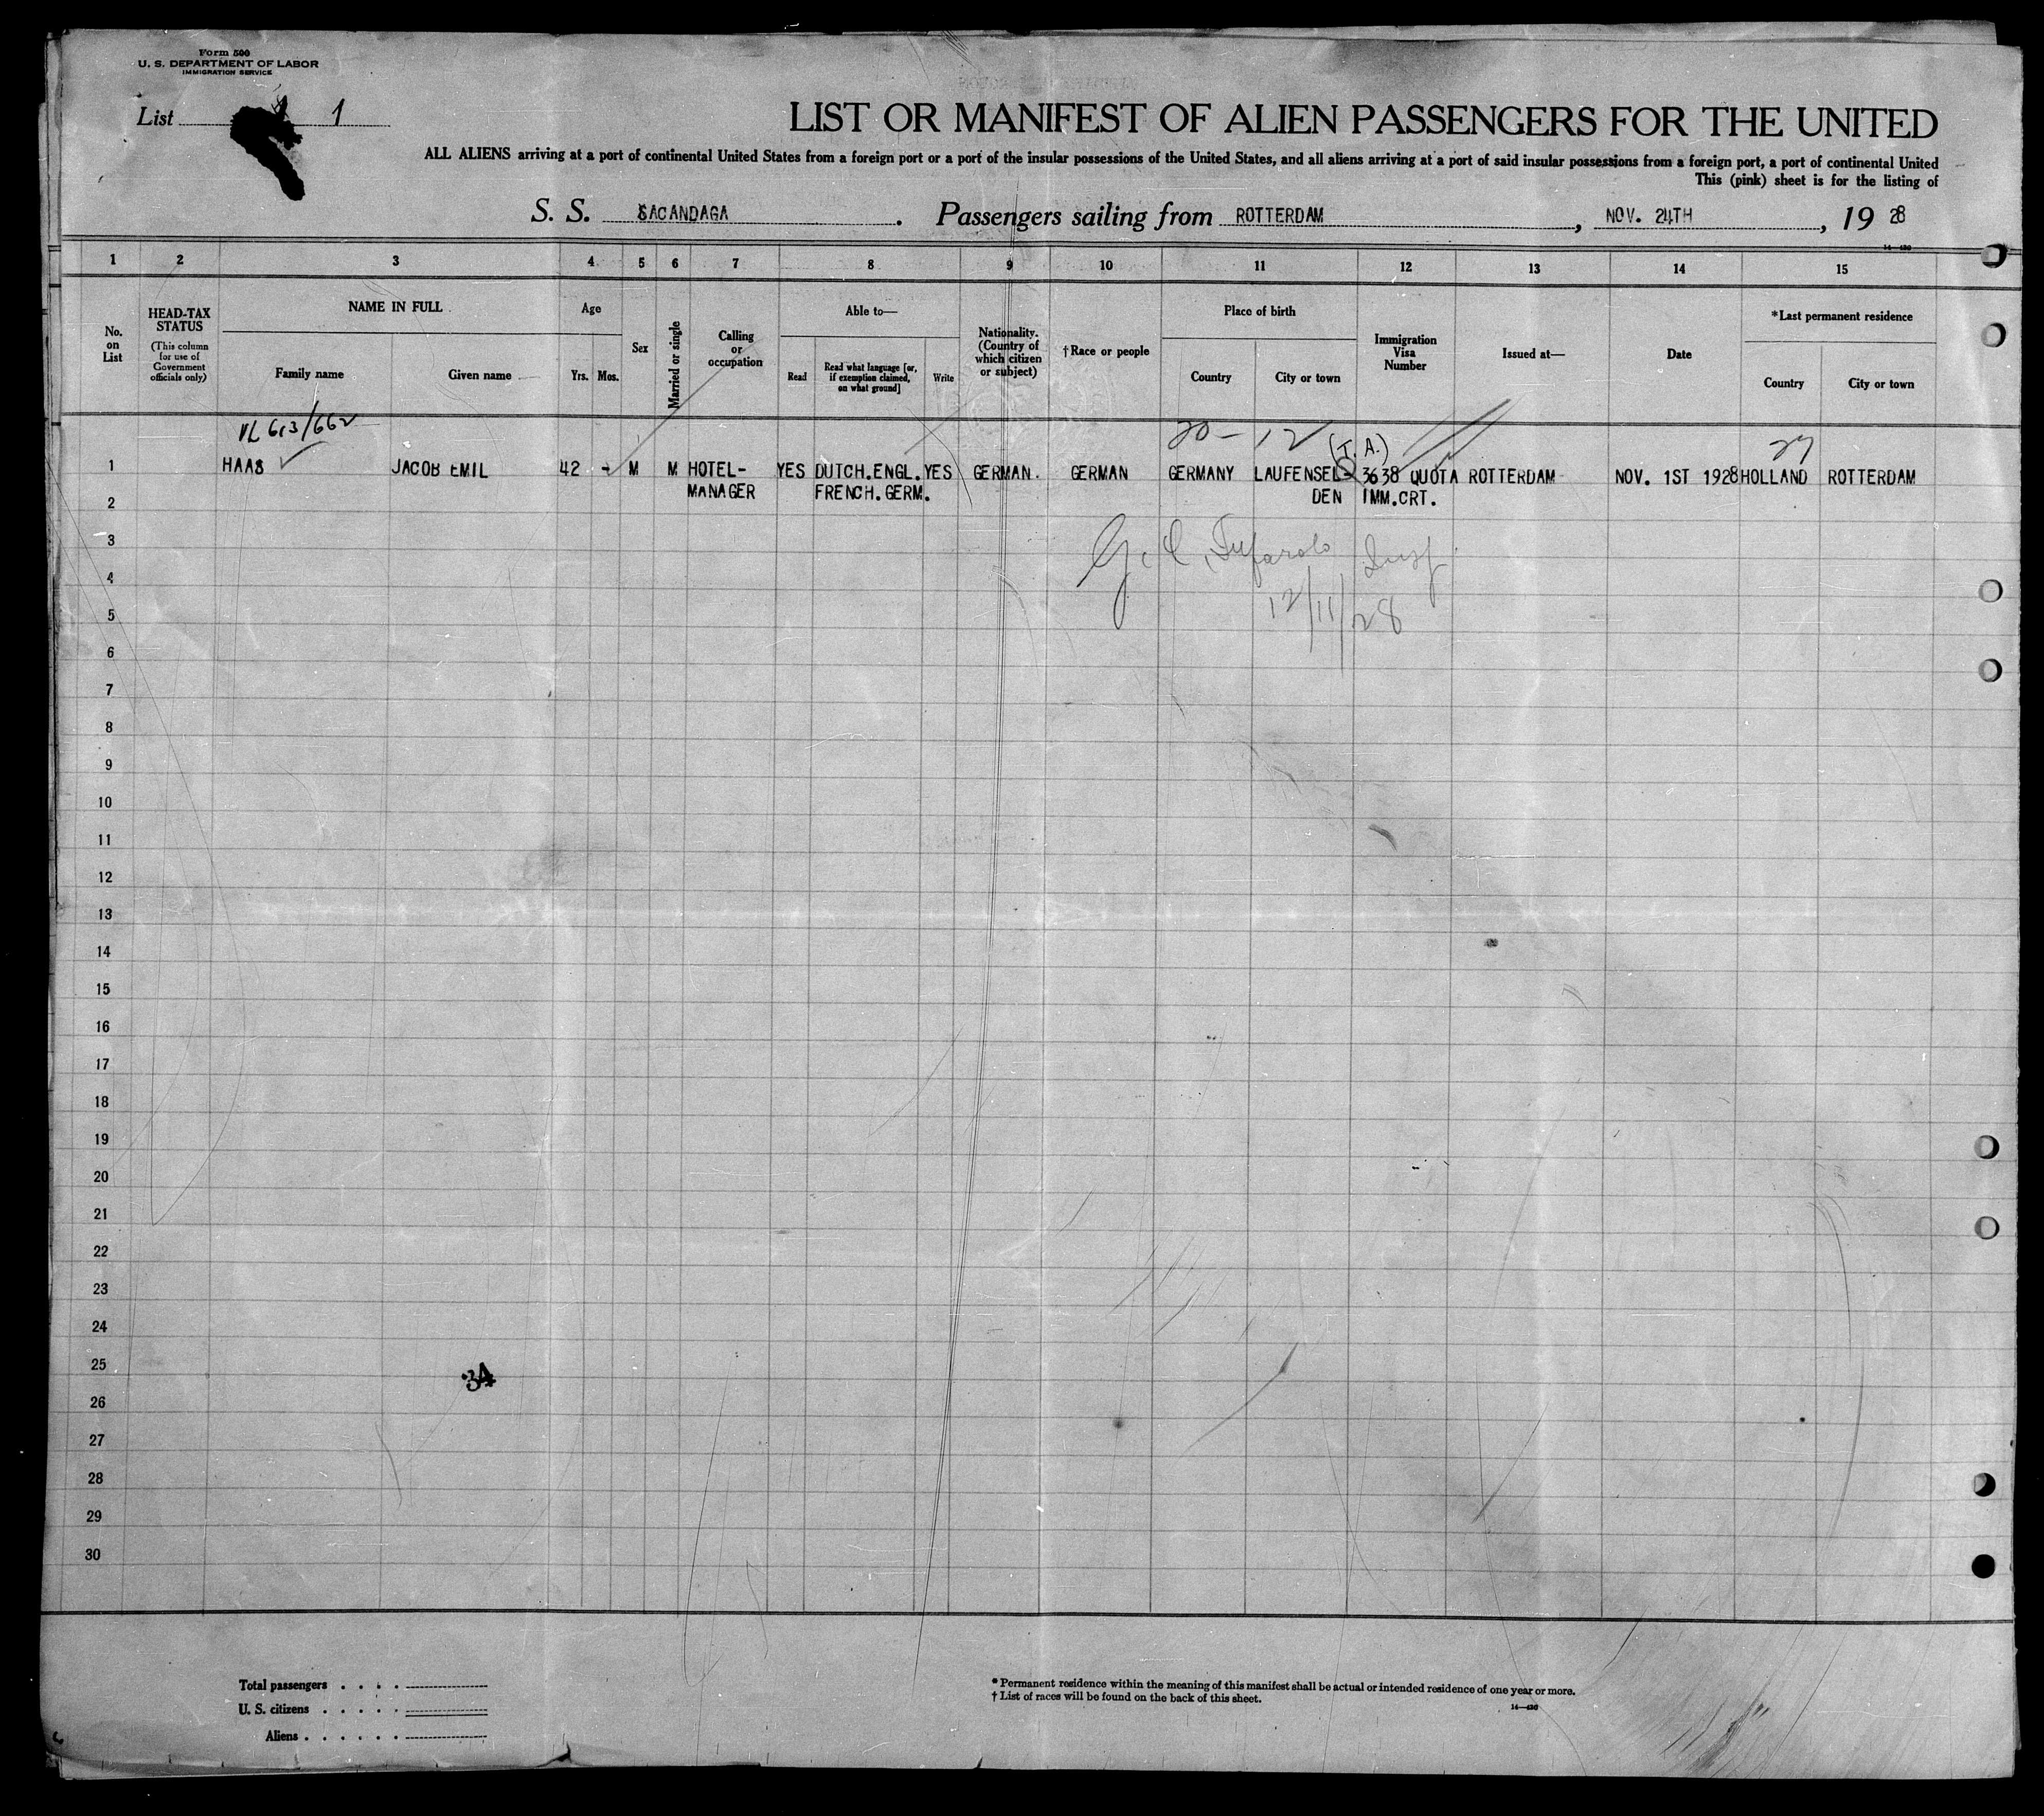 Form 500
U. S. DEPARTMENT OF LABOR
IMMIGRATION SERVICE
List 1
LIST OR MANIFEST OF ALIEN PASSENGERS FOR THE UNITED
ALL ALIENS arriving at a port of continental United States from a foreign port or a port of the insular possessions of the United States, and all aliens arriving at a port of said insular possessions from a foreign port, a port of continental United
This (pink) sheet is for the listing of
S. S. SACANDAGA. Passengers sailing from ROTTERDAM, NOV. 24TH, 1928
14—430
1 2 3 4 5 6 7 8 9 10 11 12 13 14 15
No. on List
HEAD-TAX STATUS
(This column for use of Government officials only)
NAME IN FULL
Family name
Given name
Age
Yrs. Mos.
Sex
Married or single
Calling or occupation
Able to—
Read
Read what language [or, if exemption claimed, on what ground]
Write
Nationality. (Country of which citizen or subject)
†Race or people
Place of birth
Country
City or town
Immigration Visa Number
Issued at—
Date
*Last permanent residence
Country
City or town
613/662
20 – 12
(T. A.)
27
1 HAAS JACOB EMIL 42 - M M HOTEL- YES DUTCH.ENGL. YES GERMAN. GERMAN GERMANY LAUFENSEL 3638 QUOTA ROTTERDAM NOV. 1ST 1928 HOLLAND ROTTERDAM
MANAGER FRENCH.GERM. DEN IMM.CRT.
2
3
G. C. Insp.
4
5
12/11/28
6
7
8
9
10
11
12
13
14
15
16
17
18
19
20
21
22
23
24
25
34
26
27
28
29
30
Total passengers . . . .
U. S. citizens . . . . .
Aliens . . . . . .
* Permanent residence within the meaning of this manifest shall be actual or intended residence of one year or more.
† List of races will be found on the back of this sheet.
14—430